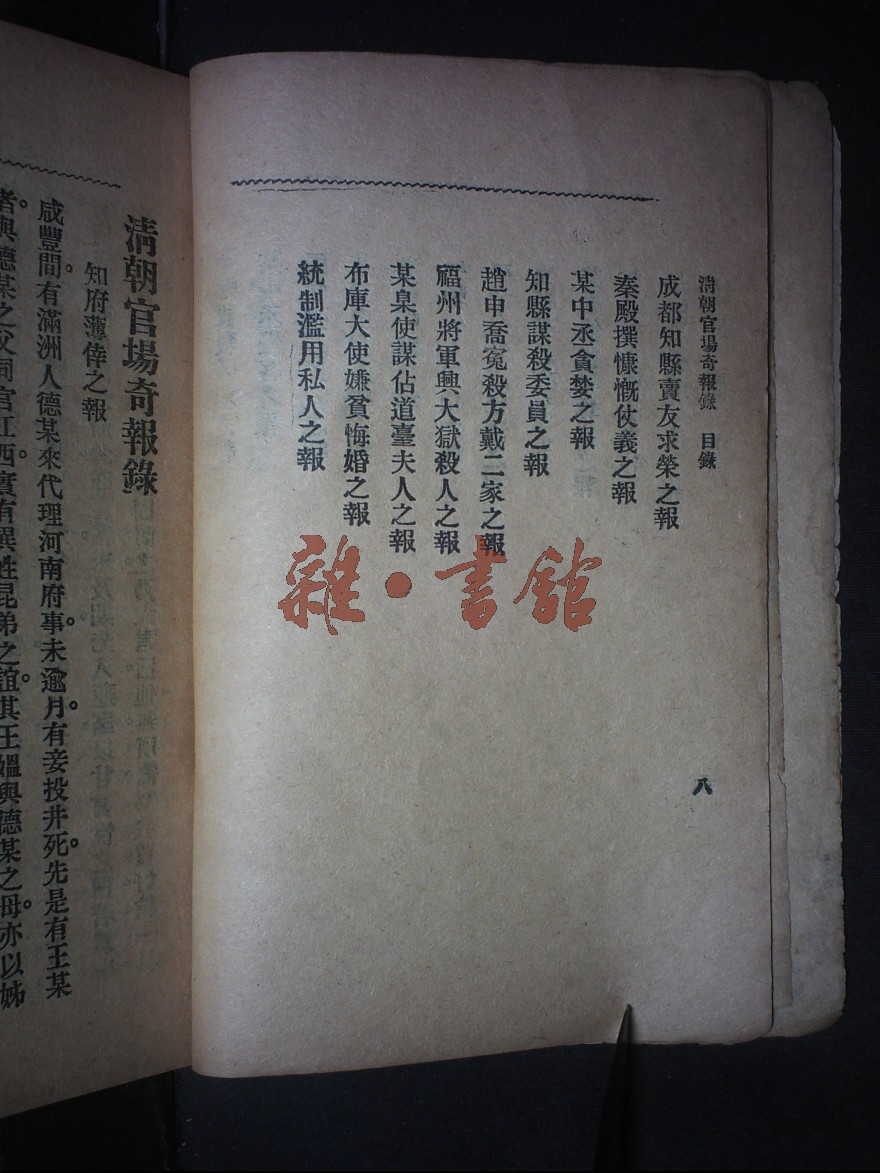 清朝官場奇報錄　目錄
成都知縣賣友求榮之報
秦殿撰慷慨仗義之報
某中丞貪婪之報
知縣謀殺委員之報
趙申喬寃殺方戴二家之報
福州將軍興大獄殺人之報
某臬使謀佔道臺夫人之報
布庫大使嫌貧悔婚之報
統制濫用私人之報
八
雜·書館
清朝官場奇報錄
知府薄倖之報
咸豐間。有滿洲人德某來代理河南府事。未逾月。有妾投井死。先是有王某
者。與德某之父同官江西。實有異姓昆弟之誼。其王媼與德某之母。亦以姊